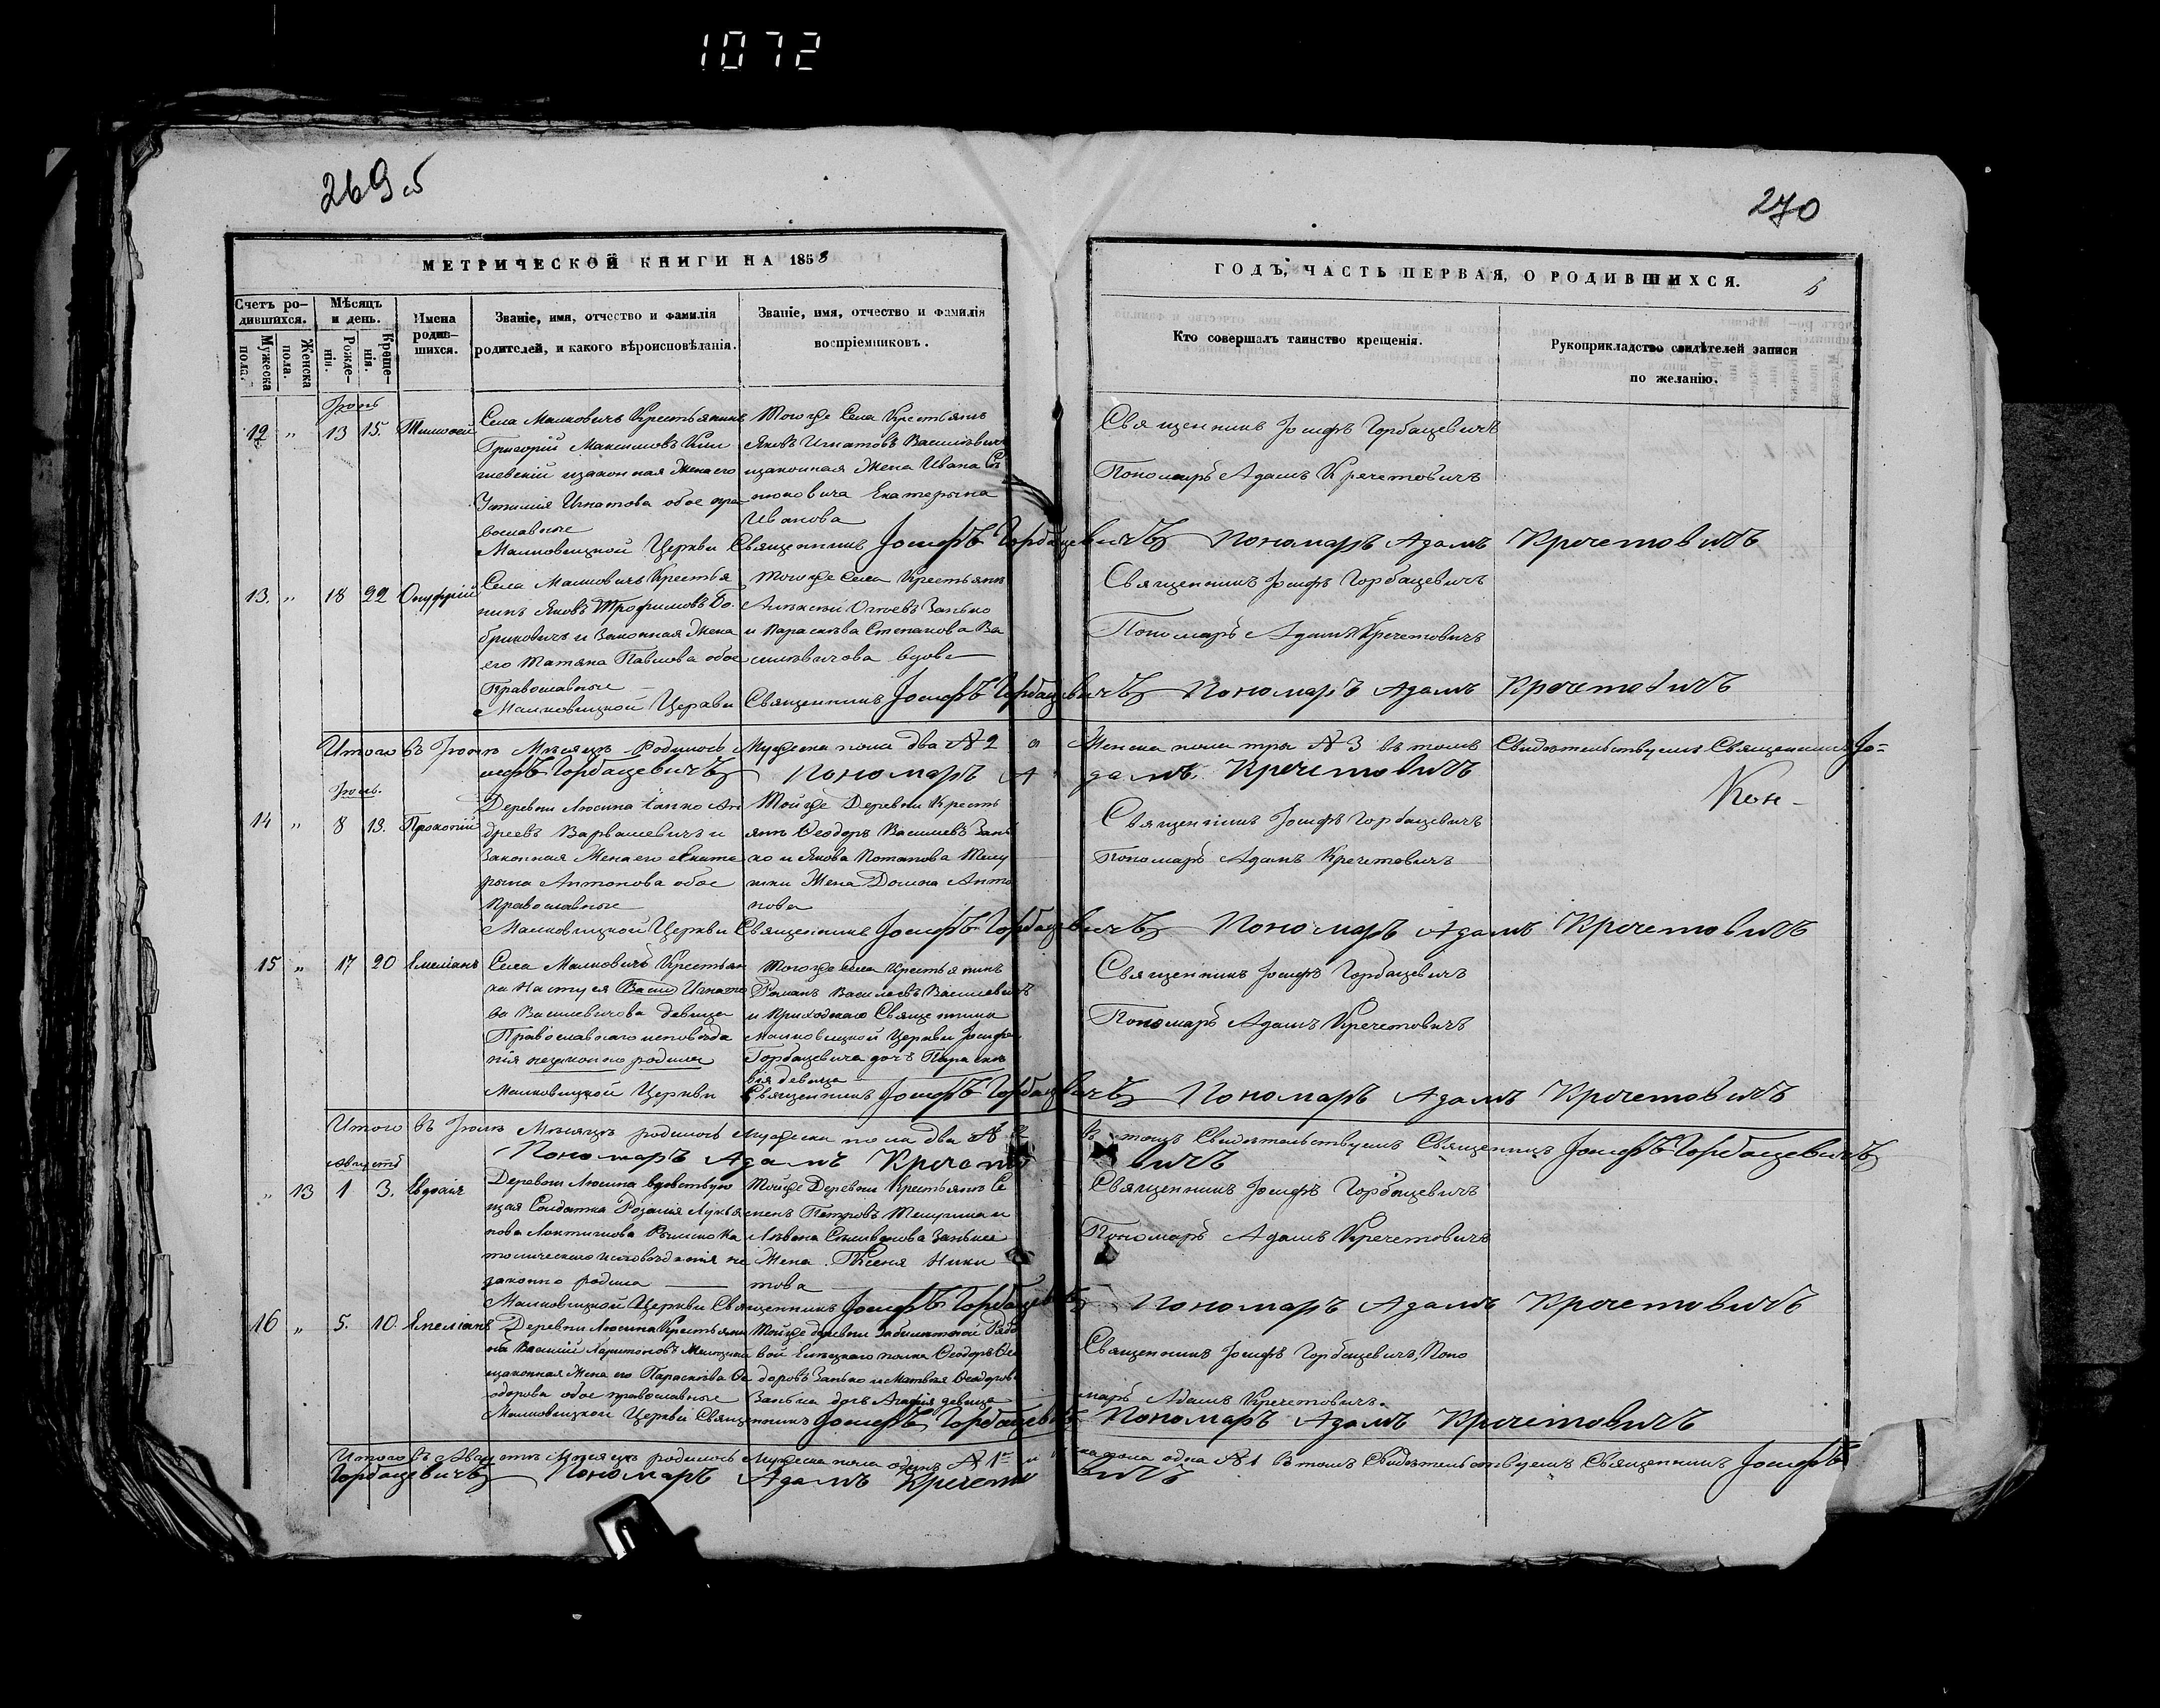 1072
269 б
270
МЕТРИЧЕСКОЙ КНИГИ НА 1858
ГОДЪ, ЧАСТЬ ПЕРВАЯ, О РОДИВШИХСЯ.
5
Счетъ ро-
дившихся.
Мужеска
пола.
Женска
пола.
Мѣсяцъ
и день.
Рожде-
нія.
Креще-
нія.
Имена
родив-
шихся.
Званіе, имя, отчество и фамилія
родителей, и какого вѣроисповѣданія.
Званіе, имя, отчество и фамилія
воспріемниковъ.
Кто совершалъ таинство крещенія.
Рукоприкладство свидѣтелей записи
по желанію.
12 " 13 15. Тимофей
Села Малковичъ Крестьянинъ
Григорій Максимовъ
изаконная Жена его
Игнатова обое пра
вославные
Тогоже Села Крестьянъ
Яковъ Игнатовъ Василѣвичъ
изаконная Жена Ивана
Екатерына
Иванова
Священникъ Іосифъ Горбацевичъ
Пономаръ Адамъ Кречетовичъ
Малковицкой Церкви Священникъ Іосифъ Горбацевичъ Пономаръ Адамъ Кречетовичъ
13. " 18 22 Онуфрій
Села Малковичъ Крестья
нинъ Яковъ Трофимовъ Бо
бриковичъ и Законная Жена
его Татяна Павлова обое
Православные
Тогоже Села Крестьянъ
Занько
и Параскѣва Степанова Ва
силѣвичова вдова
Священникъ Іосифъ Горбацевичъ
Пономаръ Адамъ Кречетовичъ
Малковицкой Церкви Священникъ Іосифъ Горбацевичъ Пономаръ Адамъ Кречетовичъ
Итого въ Іюнѣ Мѣсяцѣ Родилось Мужеска пола два № 2 а Женска пола три № 3 въ томъ Свидѣтельствуемъ Священникъ Іо-
сифъ Горбацевичъ Пономаръ Адамъ Кречетовичъ
Кон-
Іюль.
14 " 8 13. Прокопій
Деревни Люсина Ан
дреевъ Варвашевичъ и
Законная Жена его Екате
рына Антонова обое
Православные
Тойже Деревни Кресть
янъ Ѳеодоръ Василевъ Зань
ко и Якова Потапова
Жена Домна Анто
нова
Священникъ Іосифъ Горбацевичъ
Пономаръ Адамъ Кречетовичъ
Малковицкой Церкви Священникъ Іосифъ Горбацевичъ Пономаръ Адамъ Кречетовичъ
15 " 17 20 Емеліанъ
Села Малковичъ Крестьян
ка Настуся Игнато
ва Василевичова девица
Православнаго исповѣда
нія незаконно родила
Тогоже Села Крестьянинъ
Романъ Василевъ Василевичъ
и Приходскаго Священника
Малковицкой Церкви Іосифа
Горбацевича дочъ Параске
вія девица
Священникъ Іосифъ Горбацевичъ
Пономаръ Адамъ Кречетовичъ
Малковицкой Церкви Священникъ Іосифъ Горбацевичъ Пономаръ Адамъ Кречетовичъ
Итого въ Іюлѣ Мѣсяцѣ родилось Мужеска пола два № 2 въ томъ Свидѣтельствуемъ Священникъ Іосифъ Горбацевичъ
Пономаръ Адамъ Кречетовичъ
Августъ
" 13 1 3. Евдокія
Деревни Люсина вдовствую
щая Солдатка Розалія Лукья
нова Римско Ка
толическаго исповѣданія не
законно родила
Тойже Деревни Крестьянъ Се
менъ Петровъ
Занько
Жена Ксеня Ники
това
Священникъ Іосифъ Горбацевичъ
Пономаръ Адамъ Кречетовичъ
Малковицкой Церкви Священникъ Іосифъ Горбацевичъ Пономаръ Адамъ Кречетовичъ
16 " 5. 10. Емеліанъ
Деревни Люсина Крестьяни
нъ Василій Харитоновъ
изаконная Жена его Параскѣва Ѳе
одорова обое православные
Тойже деревни Рядо
вой Елецкаго полка Ѳеодоръ Ѳео
доровъ Занько и Матвѣя Ѳеодоров
Занька дочъ Агафія девица
Священникъ Іосифъ Горбацевичъ, Поно
маръ Адамъ Кречетовичъ.
Малковицкой Церкви Священникъ Іосифъ Горбацевичъ Пономаръ Адамъ Кречетовичъ
Итого въ Августѣ Мѣсяцѣ родилось Мужеска пола одинъ № 1 и Женска пола одна № 1 въ томъ Свидѣтельствуемъ Священникъ Іосифъ
Горбацевичъ Пономаръ Адамъ Кречетовичъ